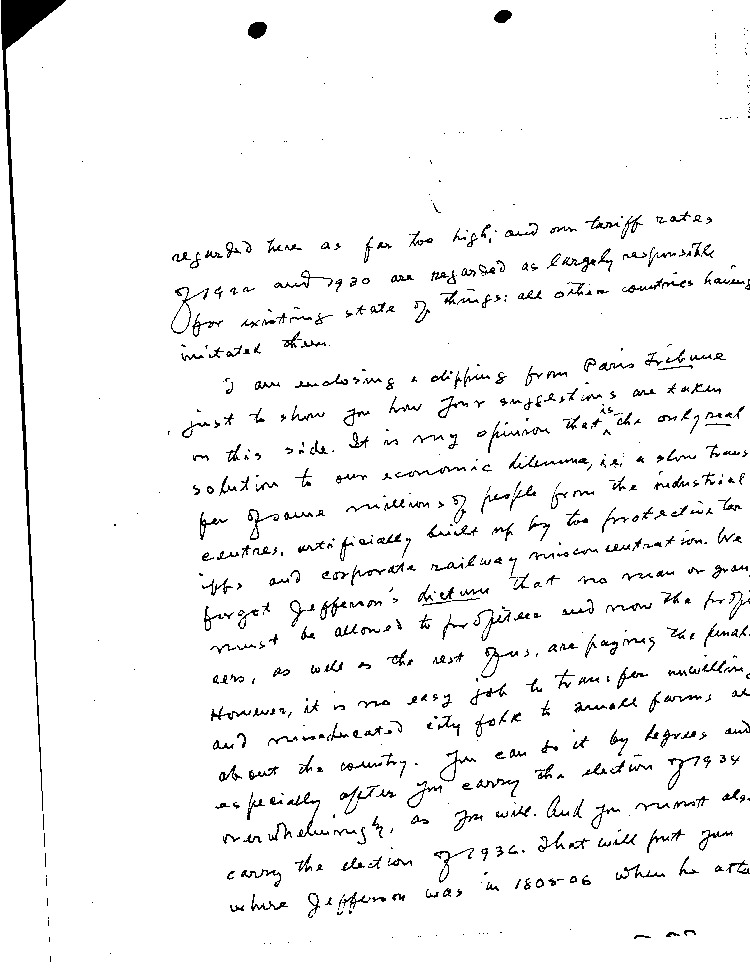 regarded here as far too high; and our tariff rates
of 1922 and 1930 are regarded as largely responsible
for existing state of things: all other countries having
imitated them.
I am enclosing a clipping from Paris Tribune
just to show you how your suggestions are taken
on this side. It is my opinion that is the only real
solution to our economic dilemma, i.e., a slow trans
fer of some millions of people from the industrial
centres, artificially built up by too protective tar
iffs and corporate railway misconcentration. We
forgot Jefferson's dictum that no man or group
must be allowed to profiteer and now the profi
eers, as well as the rest of us, are paying the penal
However, it is no easy job to transfer unwilling
and miseducated city folk to small farms al
about the country. You can do it by degrees and
especially after you carry the election of 1934
overwhelmingly, as you will. And you must als
carry the election of 1936. That will put you
where Jefferson was in 1805-06 when he atte